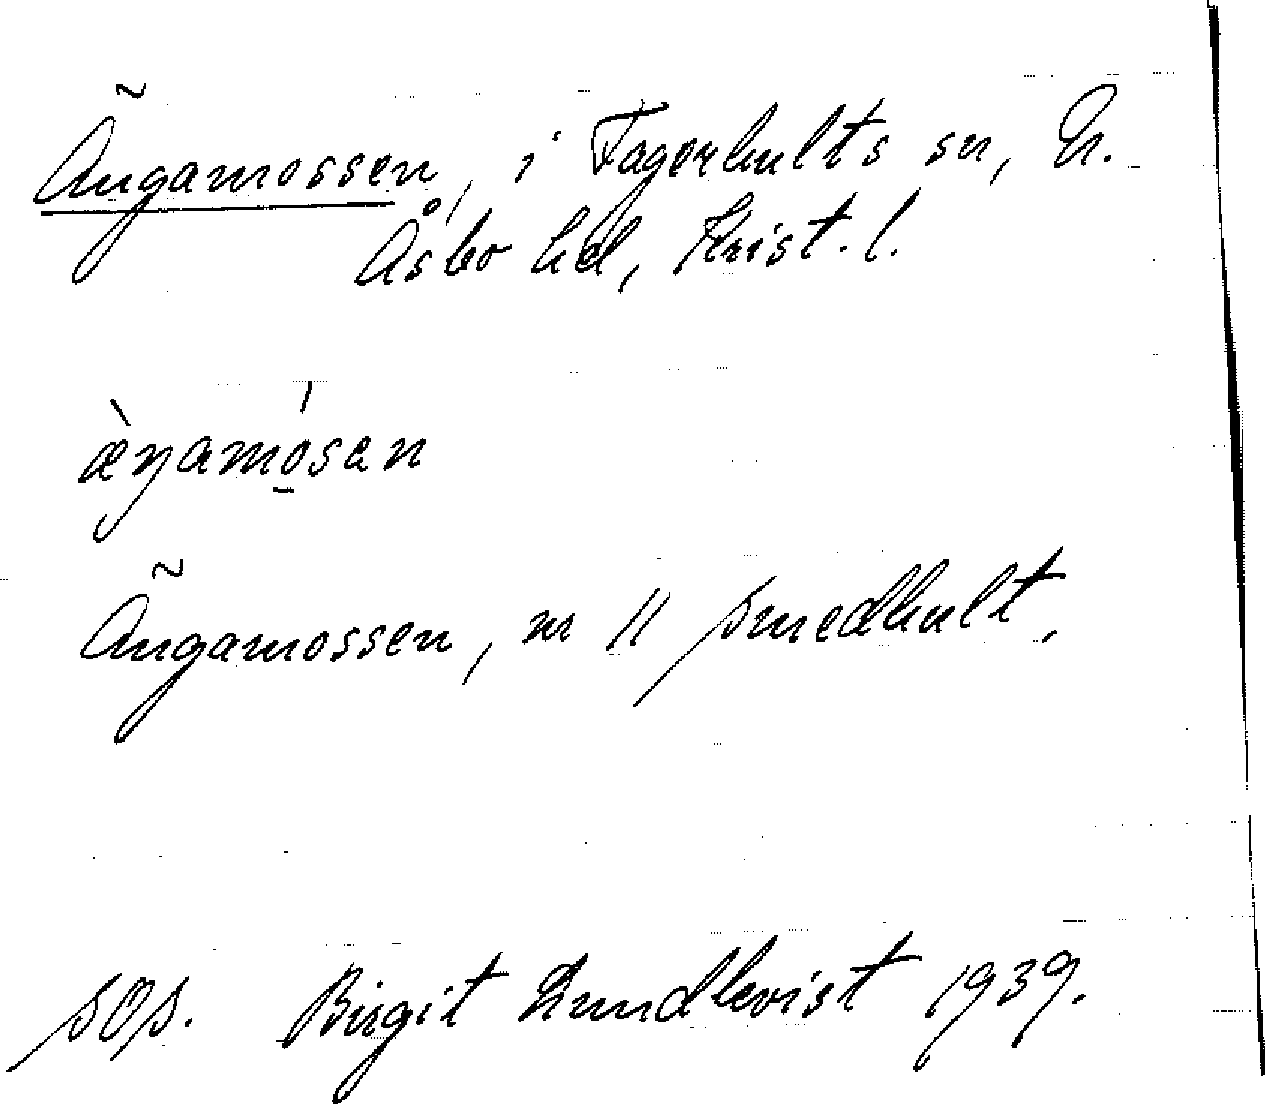 Ängamossen, i Fagerhults sn, N.
Åsbo hd, Krist. l.
æ̀ŋamó̠san
Ängamossen, m 11 Smedhult.
SOS. Birgit Lundkvist 1939.